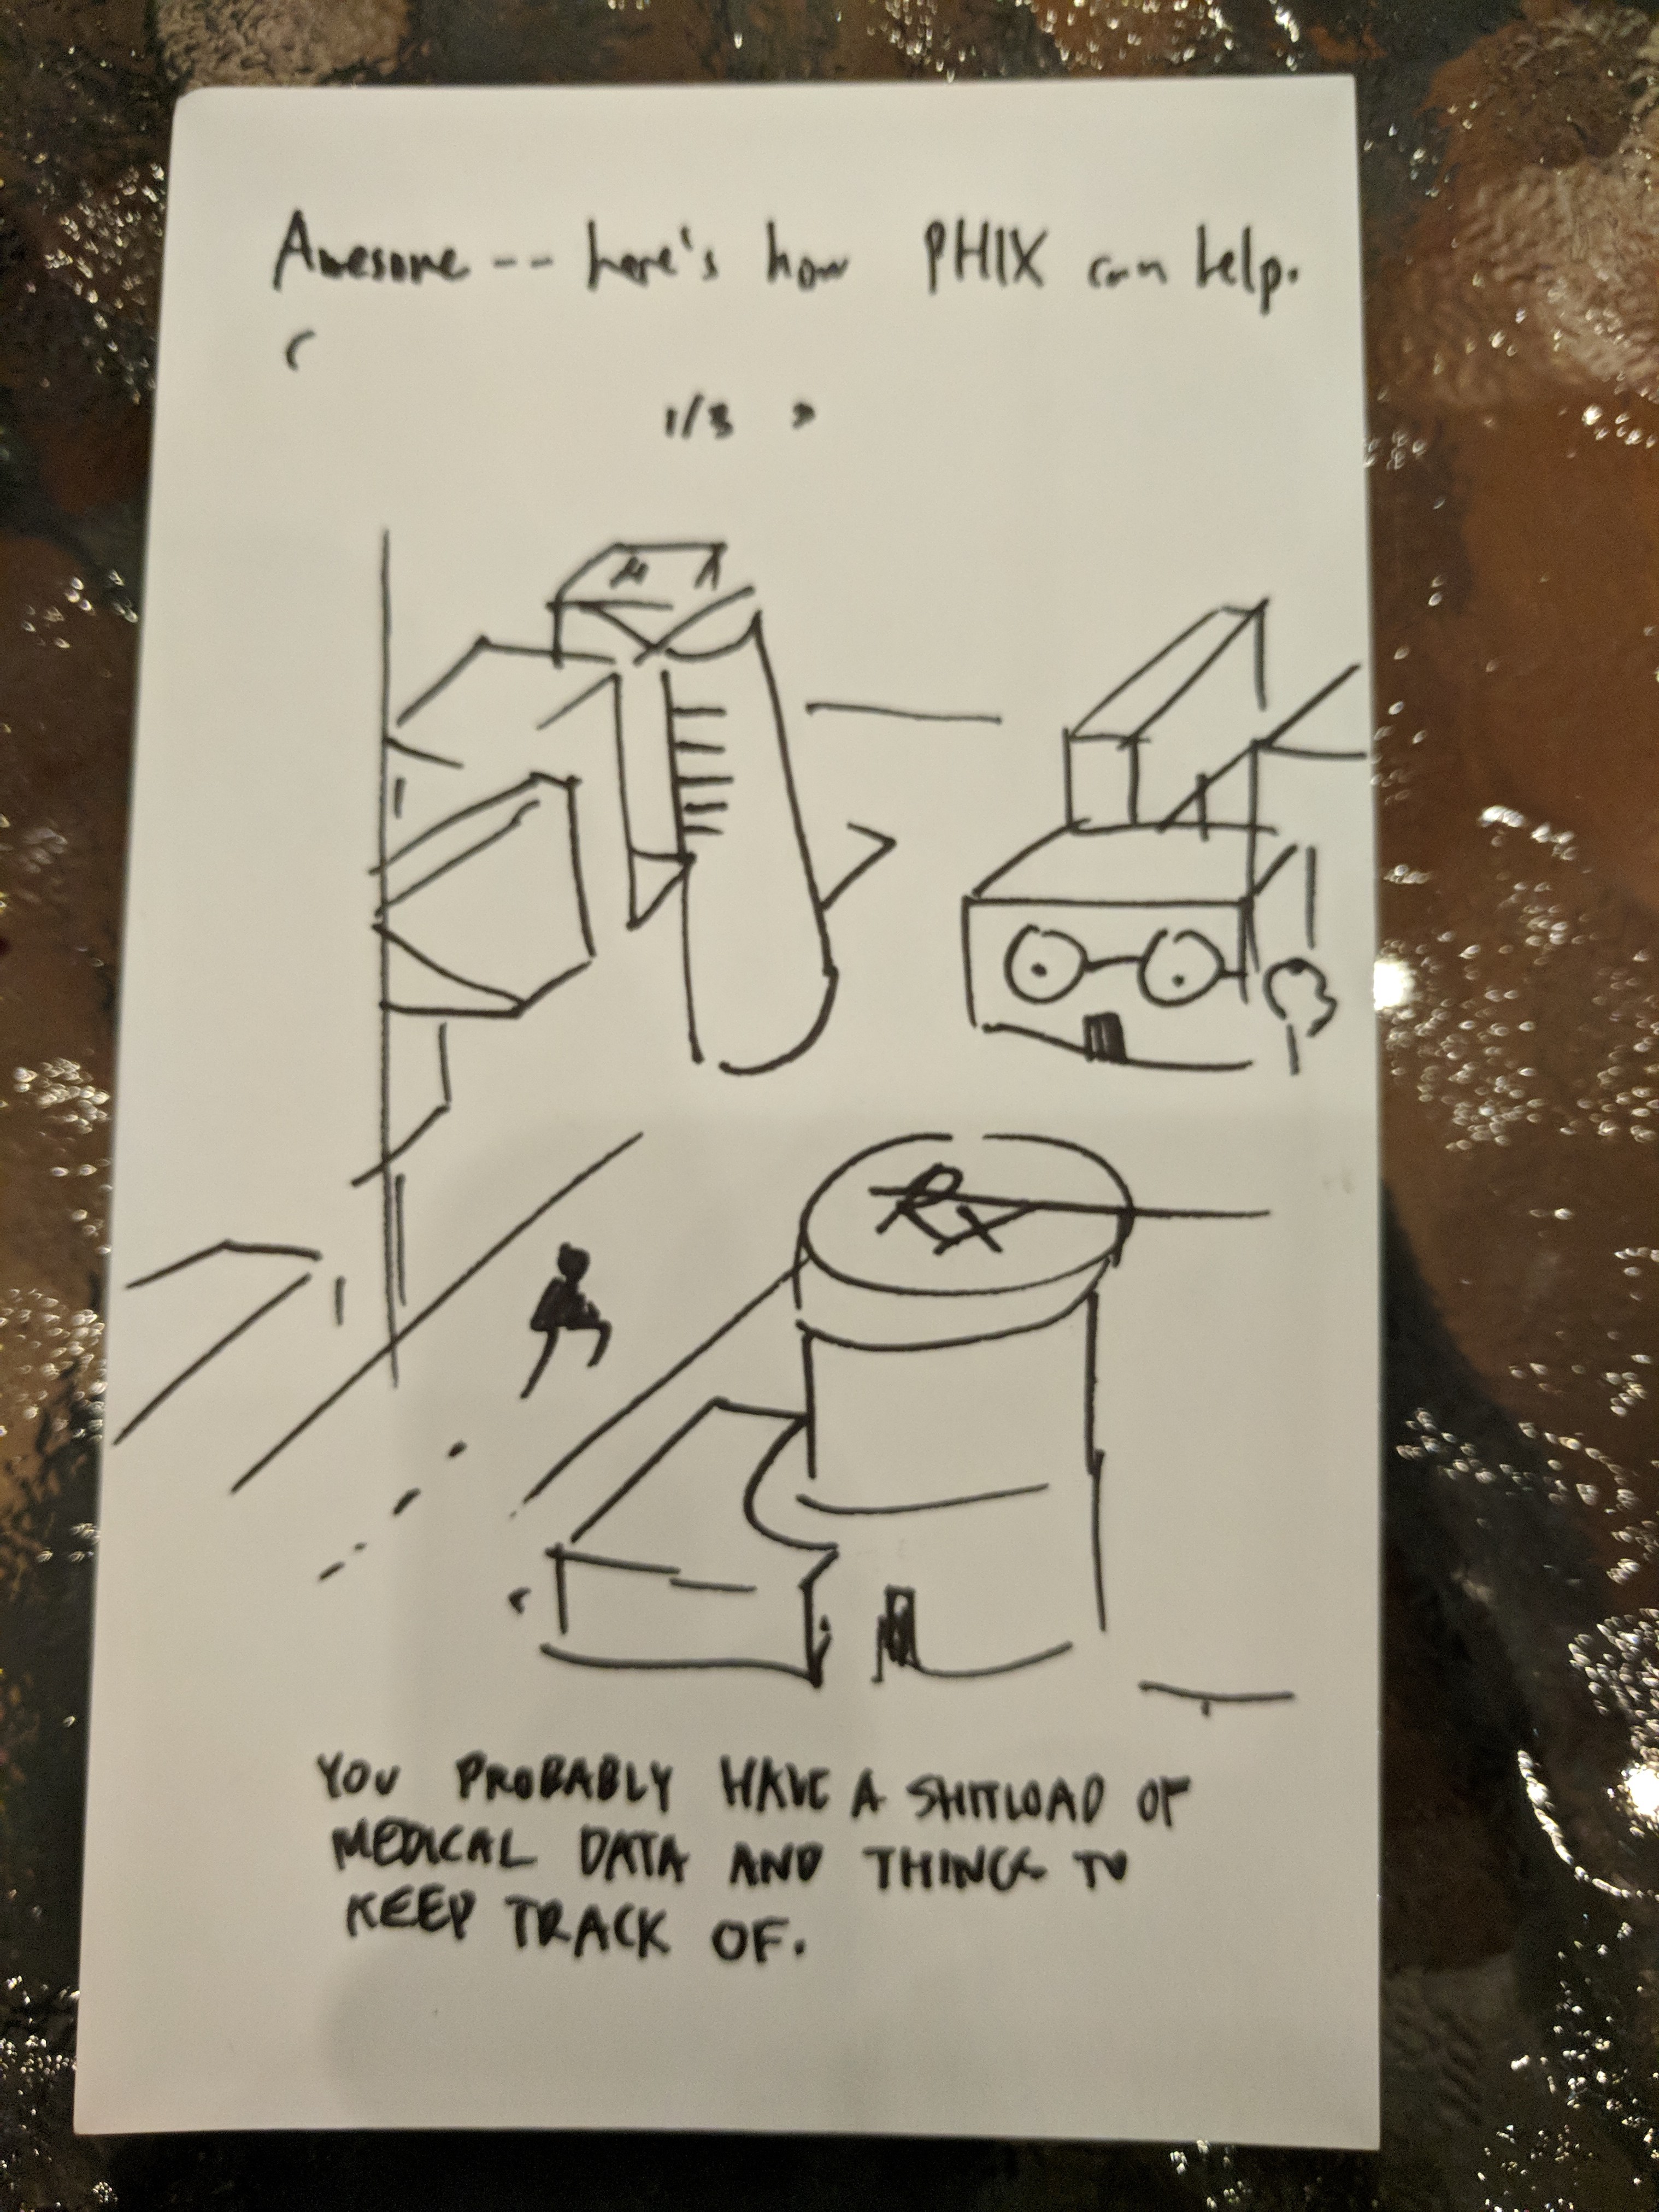 Awesome -- here's how PHIX can help.
1/3 >
Rx
YOU PROBABLY HAVE A SHITLOAD OF
MEDICAL DATA AND THINGS TO
KEEP TRACK OF.